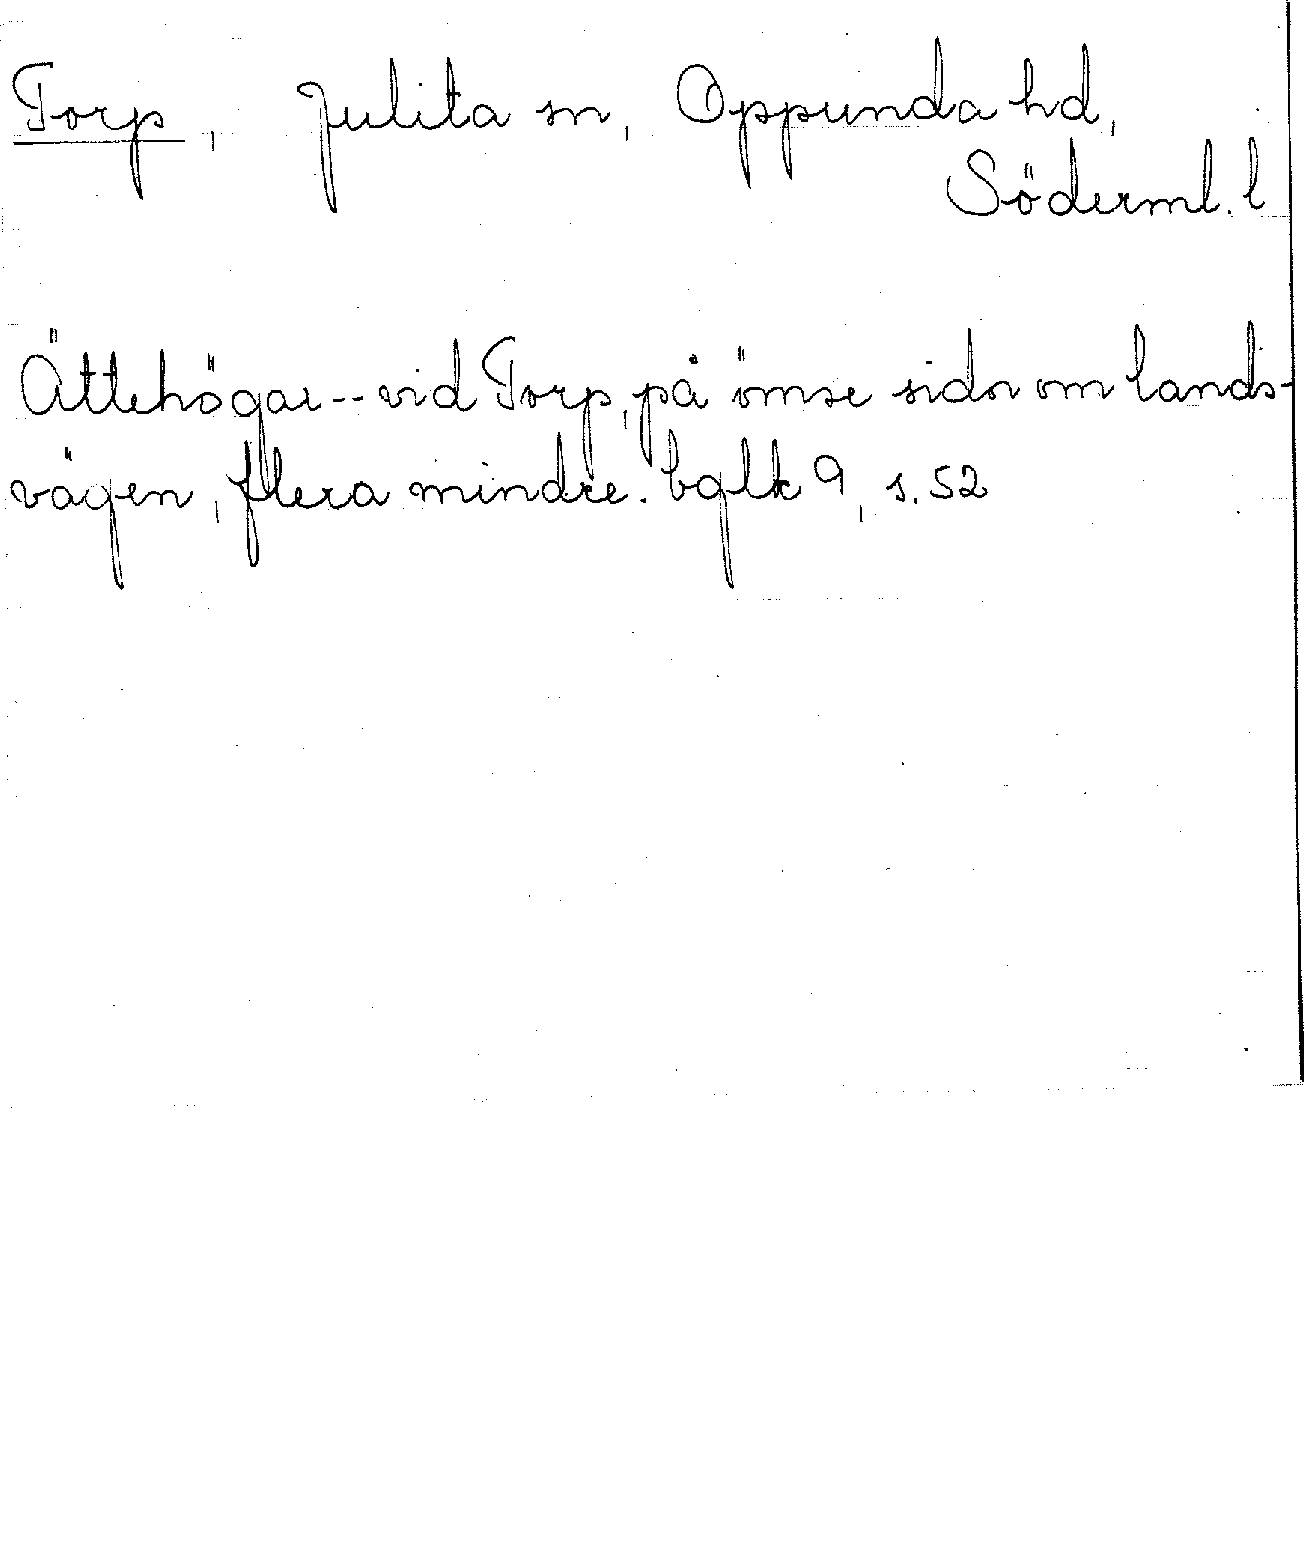 Torp, Julita sn, Oppunda hd,
Söderml. l
Ättehögar -- vid Torp, på ömse sidor om lands-
vägen, flera mindre. bglk 9, s. 52